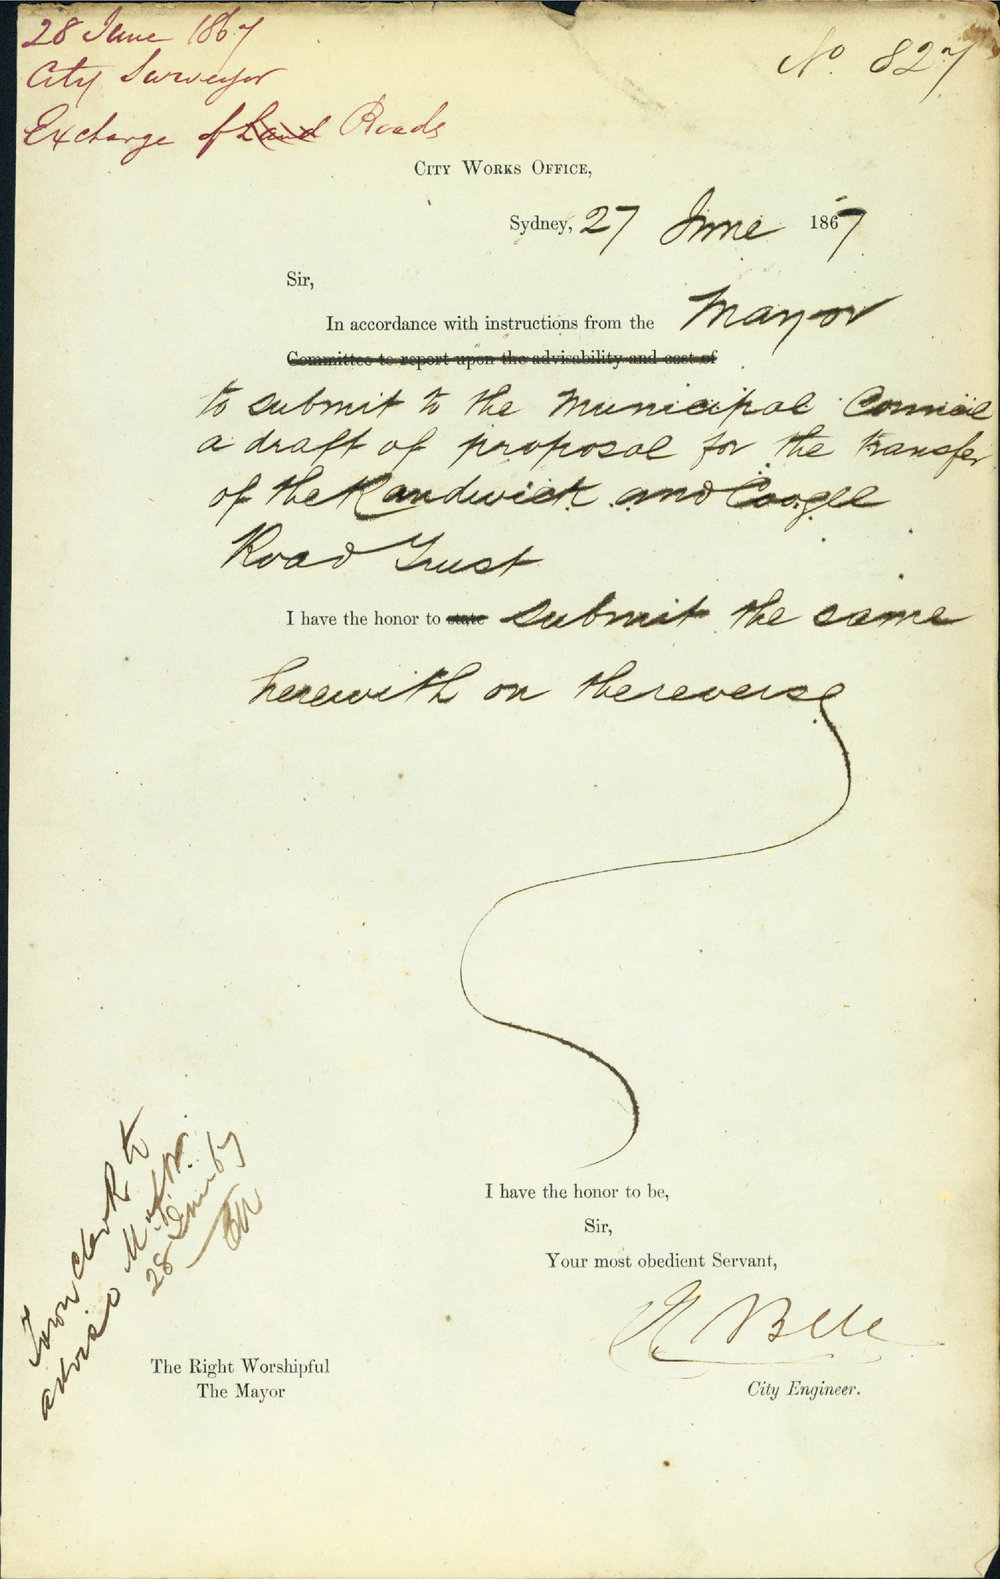 28 June 1867
City Surveyor
Exchange of Land Roads
No. 827
City Works Office,
Sydney, 27 June 1867
Sir,
In accordance with instructions from the Mayor
Committee to report upon the advisability and cost of
to submit to the Municipal Council
a draft of proposal for the transfer
of the Randwick and Coogee
Road Trust
I have the honor to state submit the same
herewith on the reverse
I have the honor to be,
Sir,
Your most obedient Servant,
Bell
City Engineer.
The Right Worshipful
The Mayor
Town Clerk to
advise
28 June 67